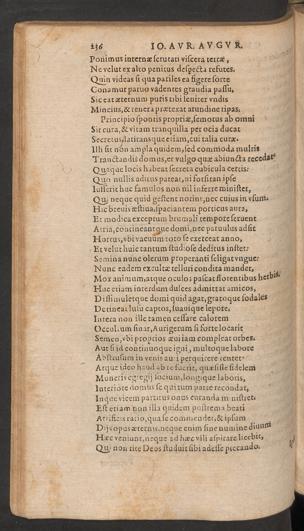 236 IO. AVR. AVGVR.
Ponimus internæ scrutati viscera terræ,
Ne velut ex alto penitus despecta refutes.
Quin videas si qua patiles ea figere sorte
Conamur patuo vadentes graudia passu,
Sic eat æternum putis tibi leniter vndis
Mincius, & tenera prætexat atundine ripas.
Principio spontis propriæ, semotus ab omni
Sit cura, & vitam tranquilla per ocia ducat
Secretus, latitansque etiam, cui talia curæ.
Illi sit non ampla quidem, sed commoda multis
Tranctandis domus, et vulgo quæ abiuncta recedat
Quaque locis habeat secreta cubicula certis:
Quo nullis aditus pateat, ni forsitan ipse
Iusserit huc famulos non nil inferre minister,
Qui neque quid gestent norint, nec cuius in vsum.
Hæc breui æstiua, spaciantem porticus aura,
Et modica exceptum brumali tempore seruent
Atria, contineantque domi, nec patulus adsit
Hortus, vbi vacuum toto se exerceat anno,
Et velut huic tantum studiose deditus instet:
Semina nunc olerum properanti seligat vngue:
Nunc eadem excultæ telluri condita mandet,
Mox animum, atque oculos pascat florentibus herbis.
Hac etiam interdum dulces admittat amicos,
Dissimuletque domi quid agat, gratoque sodales
Detineat ludi captos, suauique lepore.
Interea non ille tamen cessare calorem
Occultum sinat, Aurigerum si forte locarit
Semen, vbi proprios æui iam compleat orbes.
Aut si id continuo que igni, multoque labore
Abstrusum in venis auri perquirere tentet:
Atque ideo haud ab re fuerit, quæsisse fidelem
Muneris egregij socium, longique laboris,
Interiore domus se qui tum parte recondat,
Inque vicem partitus onus curanda ministret.
Est etiam non illa quidem postrema beati
Artificis ratio, qua se commendet, & ipsum
Dijs opus æternis, neque enim sine numine diuum
Hæc veniunt, neque ad hæc vili aspirare licebit,
Qui non rite Deos studuit sibi adesse precando.